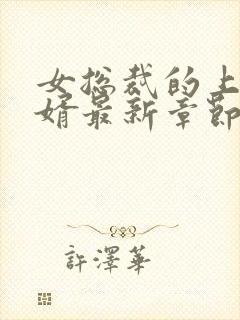 女总裁的上
婿最新章節
許澤華